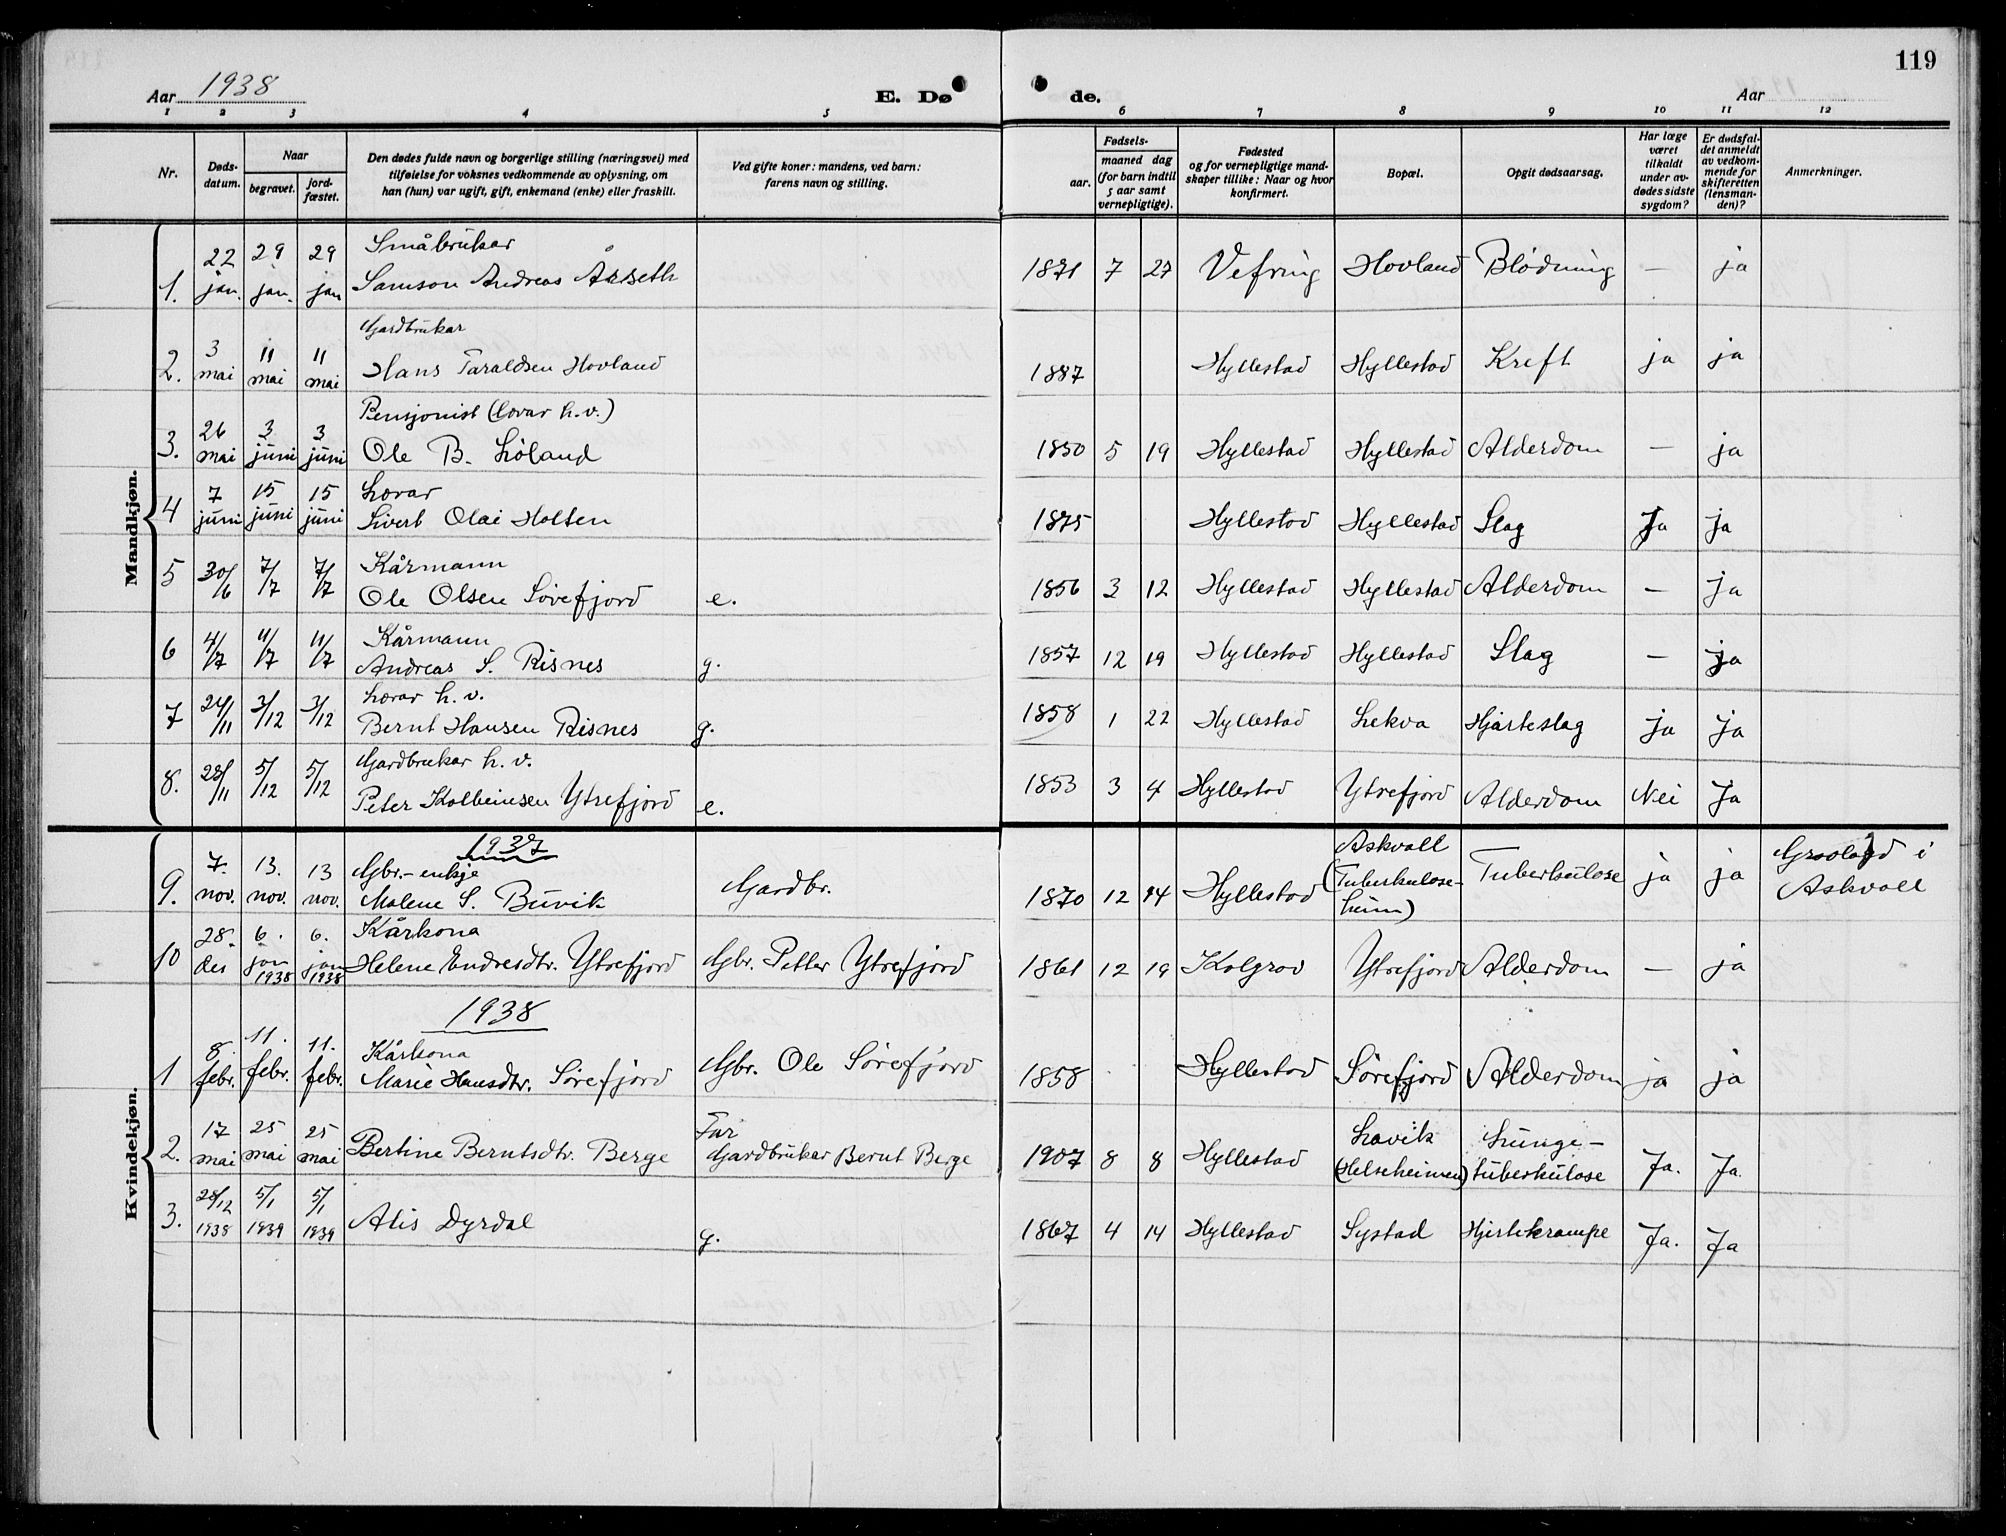 119
Aar 1938
E. Dø
de.
Aar
1 2 3 4 5 6 7 8 9 10 11 12
Nr.
Døds-
datum.
Naar
begravet.
jord-
fæstet.
Den dødes fulde navn og borgerlige stilling (næringsvei) med
tilføielse for voksnes vedkommende av oplysning, om
han (hun) var ugift, gift, enkemand (enke) eller fraskilt.
Ved gifte koner: mandens, ved barn:
farens navn og stilling.
Fødsels-
aar.
maaned dag
(for barn indtil
5 aar samt
vernepligtige).
Fødested
og for vernepligtige mand-
skaper tillike: Naar og hvor
konfirmert.
Bopæl.
Opgit dødsaarsag.
Har læge
været
tilkaldt
under av-
dødes sidste
sygdom?
Er dødsfal-
det anmeldt
av vedkom-
mende for
skifteretten
(lensman-
den)?
Anmerkninger.
Mandkjøn.
Småbrukar
1. 22 jan. 29 jan. 29 jan Samson Andreas Årseth 1871 7 27 Vefring Hovland Blødning — ja
Gardbrukar
2. 3 mai 11 mai 11 mai Hans Taraldsen Hovland 1887 Hyllestad Hyllestad Kreft ja ja
Pensjonist (Lærar h.v.)
3. 26 mai 3 juni 3 juni Ole B. Løland 1850 5 19 Hyllestad Hyllestad Alderdom — ja
Lærar
4 7 juni 15 juni 15 juni Sivert Olai Holsen 1875 Hyllestad Hyllestad Slag Ja ja
Kårmann
5 30/6 7/7 7/7 Ole Olsen Sørefjord e. 1856 3 12 Hyllestad Hyllestad Alderdom — ja
Kårmann
6 4/7 11/7 11/7 Andreas S. Risnes g. 1857 12 19 Hyllestad Hyllestad Slag — ja
Lærar h. v.
7 24/11 3/12 3/12 Bernt Hansen Risnes g. 1858 1 22 Hyllestad Lekva Hjarteslag ja ja
Gardbrukar h. v.
8. 28/11 5/12 5/12 Peter Kolbeinsen Ytrefjord e. 1853 3 4 Hyllestad Ytrefjord Alderdom Nei Ja
Kvindekjøn.
1937
Gbr.- enkje
9. 7. nov. 13. nov. 13 nov. Malene S. Buvik Gardbr. 1870 12 Hyllestad Askvoll (Tuberkulose- heim) Tuberkulose ja ja i Askvoll
Kårkona
10 28. des 6. jan 1938 6. jan 1938 Helene Endresdtr. Ytrefjord Gbr. Petter Ytrefjord 1861 12 19 Kolgrov Ytrefjord Alderdom — ja
1938
Kårkona
1 8. febr. 11. febr. 11. febr. Marie Hansdtr. Sørefjord Gbr. Ole Sørefjord 1858 Hyllestad Sørefjord Alderdom ja ja
Far
2. 17 mai 25 mai 25 mai Bertine Berntsdtr. Berge Gardbrukar Bernt Berge 1907 8 8 Hyllestad Lavik (Helseheimen) Lunge- tuberkulose Ja. Ja.
3. 28/12 1938 5/1 1939 5/1 1939 Alis Dyrdal g. 1867 4 14 Hyllestad Systad Hjertekrampe Ja. Ja